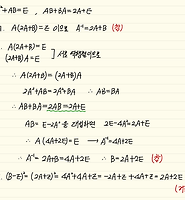 ²+AB=E , AB+BA=2A+E
. A(2A+B)=E 이므로 A⁻¹=2A+B (참)
. A(2A+B)=E
(2A+B)A=E
∴ A(2A+B) = (2A+B)A
2A²+AB=2A²+BA ∴ AB=BA
∴ AB+BA=2AB=2A+E
AB= E-2A² 을 대입하면 2E-4A²=2A+E
∴ A(4A+2E)=E → A⁻¹=4A+2E
∴ A⁻¹= 2A+B=4A+2E ∴ B=2A+2E (참)
. (B-E)²=(2A+E)²=4A²+4A+E=-2A+E+4A+E=2A+2E